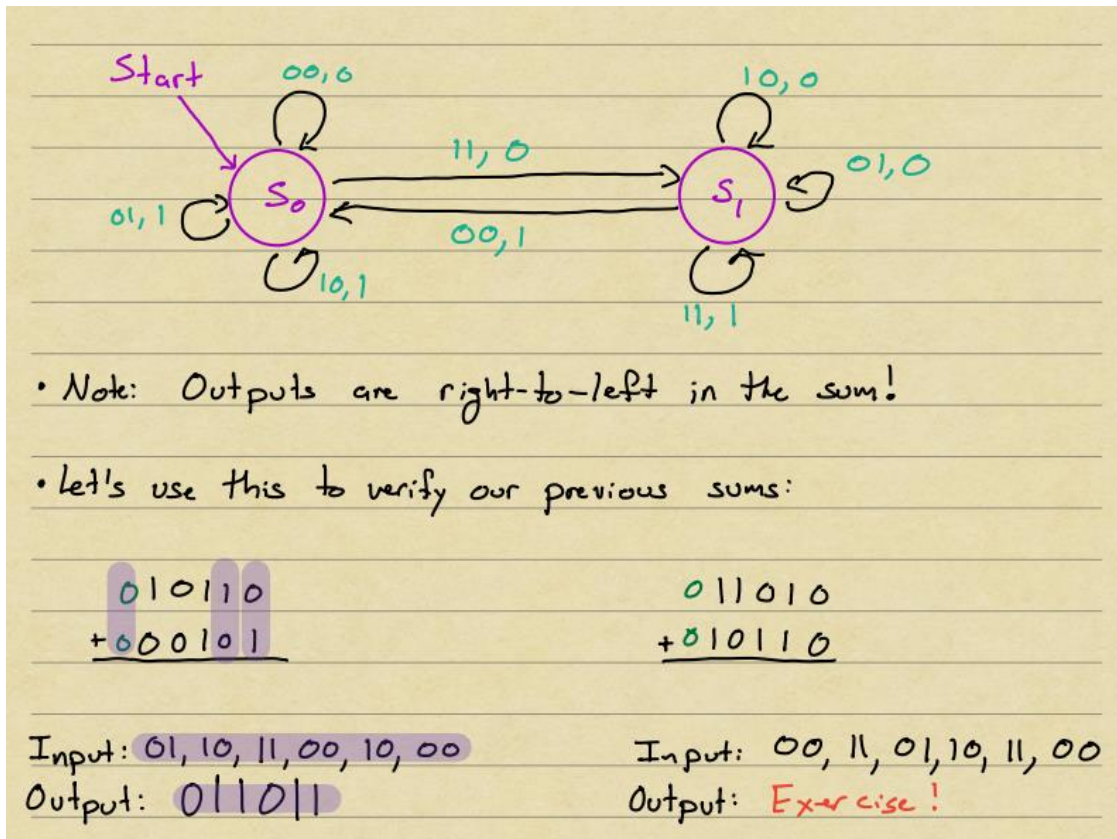 Start
00,0
10,0
11, 0
01,0
S₀
S₁
01, 1
00,1
10,1
11, 1
• Note: Outputs are right-to-left in the sum!
• Let's use this to verify our previous sums:
010110
011010
+000101
+010110
Input: 01, 10, 11, 00, 10, 00
Input: 00, 11, 01, 10, 11, 00
Output: 011011
Output: Exercise!